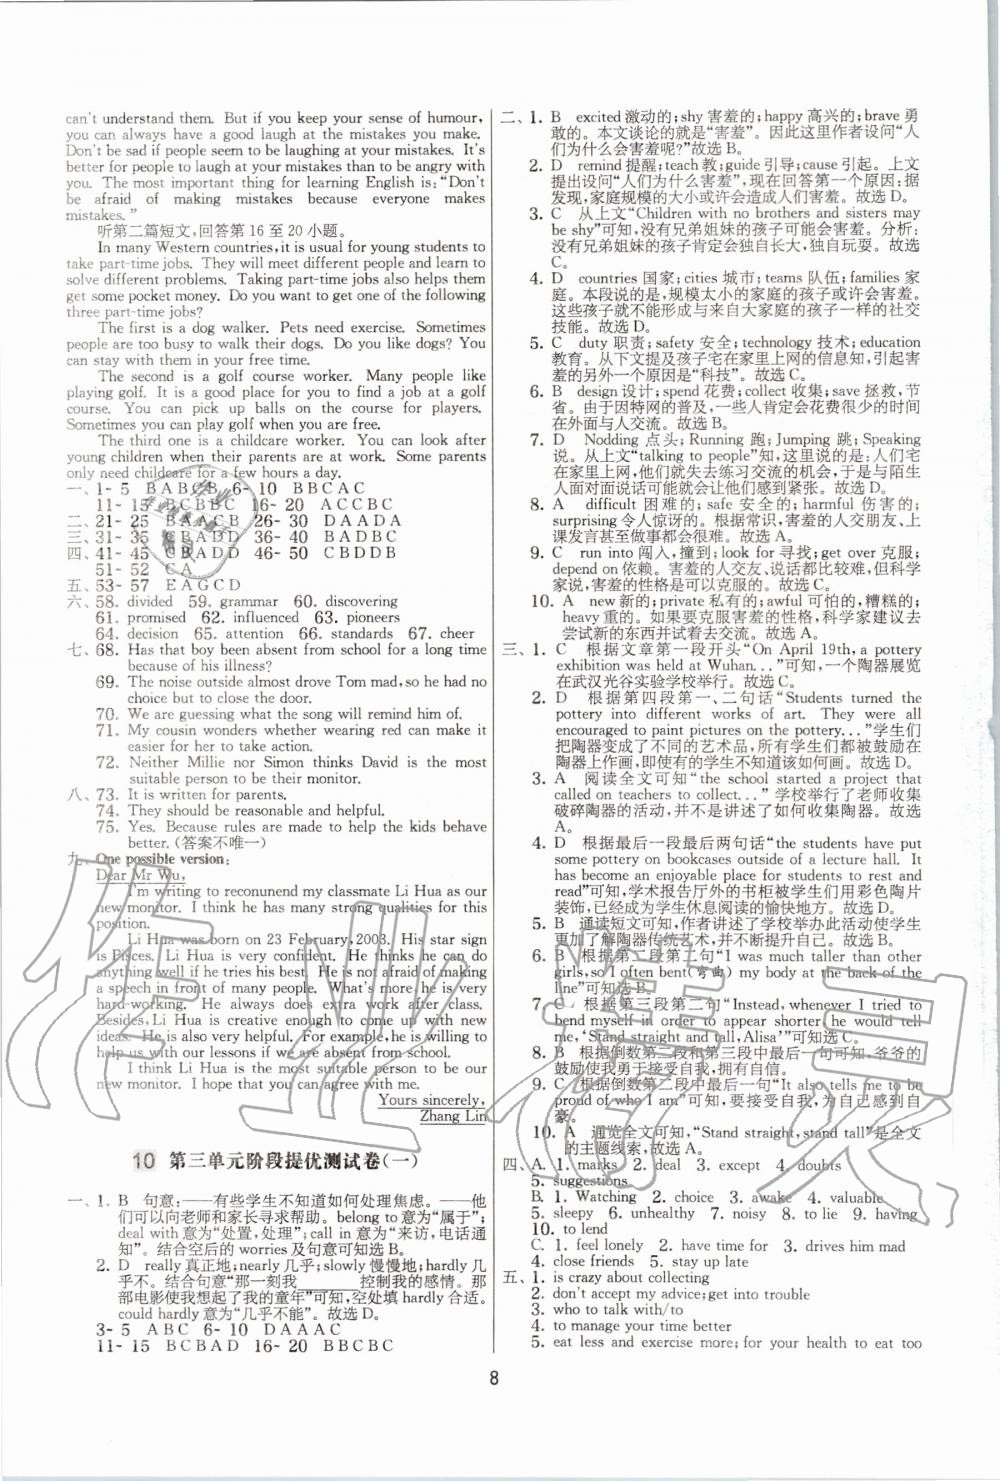 can't understand them. But if you keep your sense of humour,
you can always have a good laugh at the mistakes you make.
Don't be sad if people seem to be laughing at your mistakes. It's
better for people to laugh at your mistakes than to be angry with
you. The most important thing for learning English is: "Don't
be afraid of making mistakes because everyone makes
mistakes."
听第二篇短文,回答第16至20小题。
In many Western countries, it is usual for young students to
take part-time jobs. They will meet different people and learn to
solve different problems. Taking part-time jobs also helps them
get some pocket money. Do you want to get one of the following
three part-time jobs?
The first is a dog walker. Pets need exercise. Sometimes
people are too busy to walk their dogs. Do you like dogs? You
can stay with them in your free time.
The second is a golf course worker. Many people like
playing golf. It is a good place for you to find a job at a golf
course. You can pick up balls on the course for players.
Sometimes you can play golf when you are free.
The third one is a childcare worker. You can look after
young children when their parents are at work. Some parents
only need childcare for a few hours a day.
一、1- 5 BABCB 6- 10 BBCAC
11- 15 BCBBC 16- 20 ACCBC
二、21- 25 BAACB 26- 30 DAADA
三、31- 35 CBADD 36- 40 BADBC
四、41- 45 CBADD 46- 50 CBDDB
51- 52 CA
五、53- 57 EAGCD
六、58. divided 59. grammar 60. discovering
61. promised 62. influenced 63. pioneers
64. decision 65. attention 66. standards 67. cheer
七、68. Has that boy been absent from school for a long time
because of his illness?
69. The noise outside almost drove Tom mad, so he had no
choice but to close the door.
70. We are guessing what the song will remind him of.
71. My cousin wonders whether wearing red can make it
easier for her to take action.
72. Neither Millie nor Simon thinks David is the most
suitable person to be their monitor.
八、73. It is written for parents.
74. They should be reasonable and helpful.
75. Yes. Because rules are made to help the kids behave
better. (答案不唯一)
九、One possible version:
Dear Mr Wu,
I'm writing to reconunend my classmate Li Hua as our
new monitor. I think he has many strong qualities for this
position.
Li Hua was born on 23 February, 2003. His star sign
is Pisces. Li Hua is very confident. He thinks he can do
anything well if he tries his best. He is not afraid of making
a speech in front of many people. What's more, he is very
hard-working. He always does extra work after class.
Besides, Li Hua is creative enough to come up with new
ideas. He is also very helpful. For example, he is willing to
help us with our lessons if we are absent from school.
I think Li Hua is the most suitable person to be our
new monitor. I hope that you can agree with me.
Yours sincerely,
Zhang Lin
10 第三单元阶段提优测试卷(一)
一、1. B 句意:——有些学生不知道如何处理焦虑。——他
们可以向老师和家长寻求帮助。belong to 意为“属于”;
deal with 意为“处置,处理”;call in 意为“来访,电话通
知”。结合空后的 worries 及句意可知选 B。
2. D really 真正地;nearly 几乎;slowly 慢慢地;hardly 几
乎不。结合句意“那一刻我______控制我的感情。那
部电影使我想起了我的童年”可知,空处填 hardly 合适。
could hardly 意为“几乎不能”。故选 D。
3- 5 ABC 6- 10 DAAAC
11- 15 BCBAD 16- 20 BBCBC
二、1. B excited 激动的;shy 害羞的;happy 高兴的;brave 勇
敢的。本文谈论的就是“害羞”。因此这里作者设问“人
们为什么会害羞呢?”故选 B。
2. D remind 提醒;teach 教;guide 引导;cause 引起。上文
提出设问“人们为什么害羞”,现在回答第一个原因;据
发现,家庭规模的大小或许会造成人们害羞。故选 D。
3. C 从上文“Children with no brothers and sisters may
be shy”可知,没有兄弟姐妹的孩子可能会害羞。分析:
没有兄弟姐妹的孩子肯定会独自长大,独自玩耍。故选
C。
4. D countries 国家;cities 城市;teams 队伍;families 家
庭。本段说的是,规模太小的家庭的孩子或许会害羞。
这些孩子就不能形成与来自大家庭的孩子一样的社交
技能。故选 D。
5. C duty 职责;safety 安全;technology 技术;education
教育。从下文提及孩子宅在家里上网的信息知,引起害
羞的另外一个原因是“科技”。故选 C。
6. B design 设计;spend 花费;collect 收集;save 拯救,节
省。由于因特网的普及,一些人肯定会花费很少的时间
在外面与人交流。故选 B。
7. D Nodding 点头;Running 跑;Jumping 跳;Speaking
说。从上文“talking to people”知,这里说的是:人们宅在
家里上网,他们就失去练习交流的机会,于是与陌生
人面对面说话可能就会感到紧张。故选 D。
8. A difficult 困难的;safe 安全的;harmful 伤害的;
surprising 令人惊讶的。根据常识,害羞的人交朋友、上
课发言甚至做事都会很难。故选 A。
9. C run into 闯入,撞到;look for 寻找;get over 克服;
depend on 依赖。害羞的人交友、说话都比较难,但科学
家说,害羞的性格是可以克服的。故选 C。
10. A new 新的;private 私有的;awful 可怕的,糟糕的;
heavy 重的。如果要克服害羞的性格,科学家建议去
尝试新的东西并试着去交流。故选 A。
三、1. C 根据文章第一段开头“On April 19th, a pottery
exhibition was held at Wuhan...”可知,一个陶器展览
在武汉光谷实验学校举行。故选 C。
2. D 根据第四段第一、二句话“Students turned the
pottery into different works of art. They were all
encouraged to paint pictures on the pottery...”学生们
把陶器变成了不同的艺术品,所有学生们都被鼓励在
陶器上作画,即使有的学生不知道该如何画。故选 D。
3. A 阅读全文可知“the school started a project that
called on teachers to collect...”学校举行了老师收集
破碎陶器的活动,并不是讲述了如何收集陶器。故选
A。
4. D 根据最后一段最后两句话“the students have put
some pottery on bookcases outside of a lecture hall. It
has become an enjoyable place for students to rest and
read”可知,学术报告厅外的书柜被学生们用彩色陶片
装饰,已经成为学生休息阅读的愉快地方。故选 D。
5. B 通读短文可知,作者讲述了学校举办此活动使学生
更加了解陶器传统艺术,并不断提升自己。故选 B。
6. B 根据第二段第二句“I was much taller than other
girls, so I often bent(弯曲) my body at the back of the
line”可知选 B。
7. C 根据第三段第二句“Instead, whenever I tried to
bend myself in order to appear shorter, he would tell
me, ‘Stand straight and tall, Alisa’”可知选 C。
8. B 根据倒数第二段和第三段中最后一句可知,爷爷的
鼓励使我勇于接受挑战,拥有自信。
9. C 根据倒数第二段中最后一句“It also tells me to be
proud of who I am”可知,要接受自我,为自己感到自
豪。
10. A 通览全文可知,“Stand straight, stand tall”是全文
的主题线索,故选 A。
四、A. 1. marks 2. deal 3. except 4. doubts
5. suggestions
B. 1. Watching 2. choice 3. awake 4. valuable
5. sleepy 6. unhealthy 7. noisy 8. to lie 9. having
10. to lend
C. 1. feel lonely 2. have time for 3. drives him mad
4. close friends 5. stay up late
五、1. is crazy about collecting
2. don't accept my advice; get into trouble
3. who to talk with/to
4. to manage your time better
5. eat less and exercise more; for your health to eat too
8
作业精灵